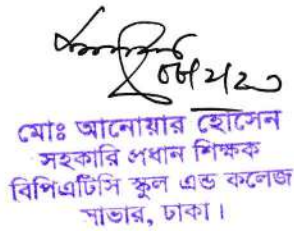 ০৮/২/২০
মোঃ আনোয়ার হোসেন
সহকারি প্রধান শিক্ষক
বিপিএটিসি স্কুল এন্ড কলেজ
সাভার, ঢাকা।